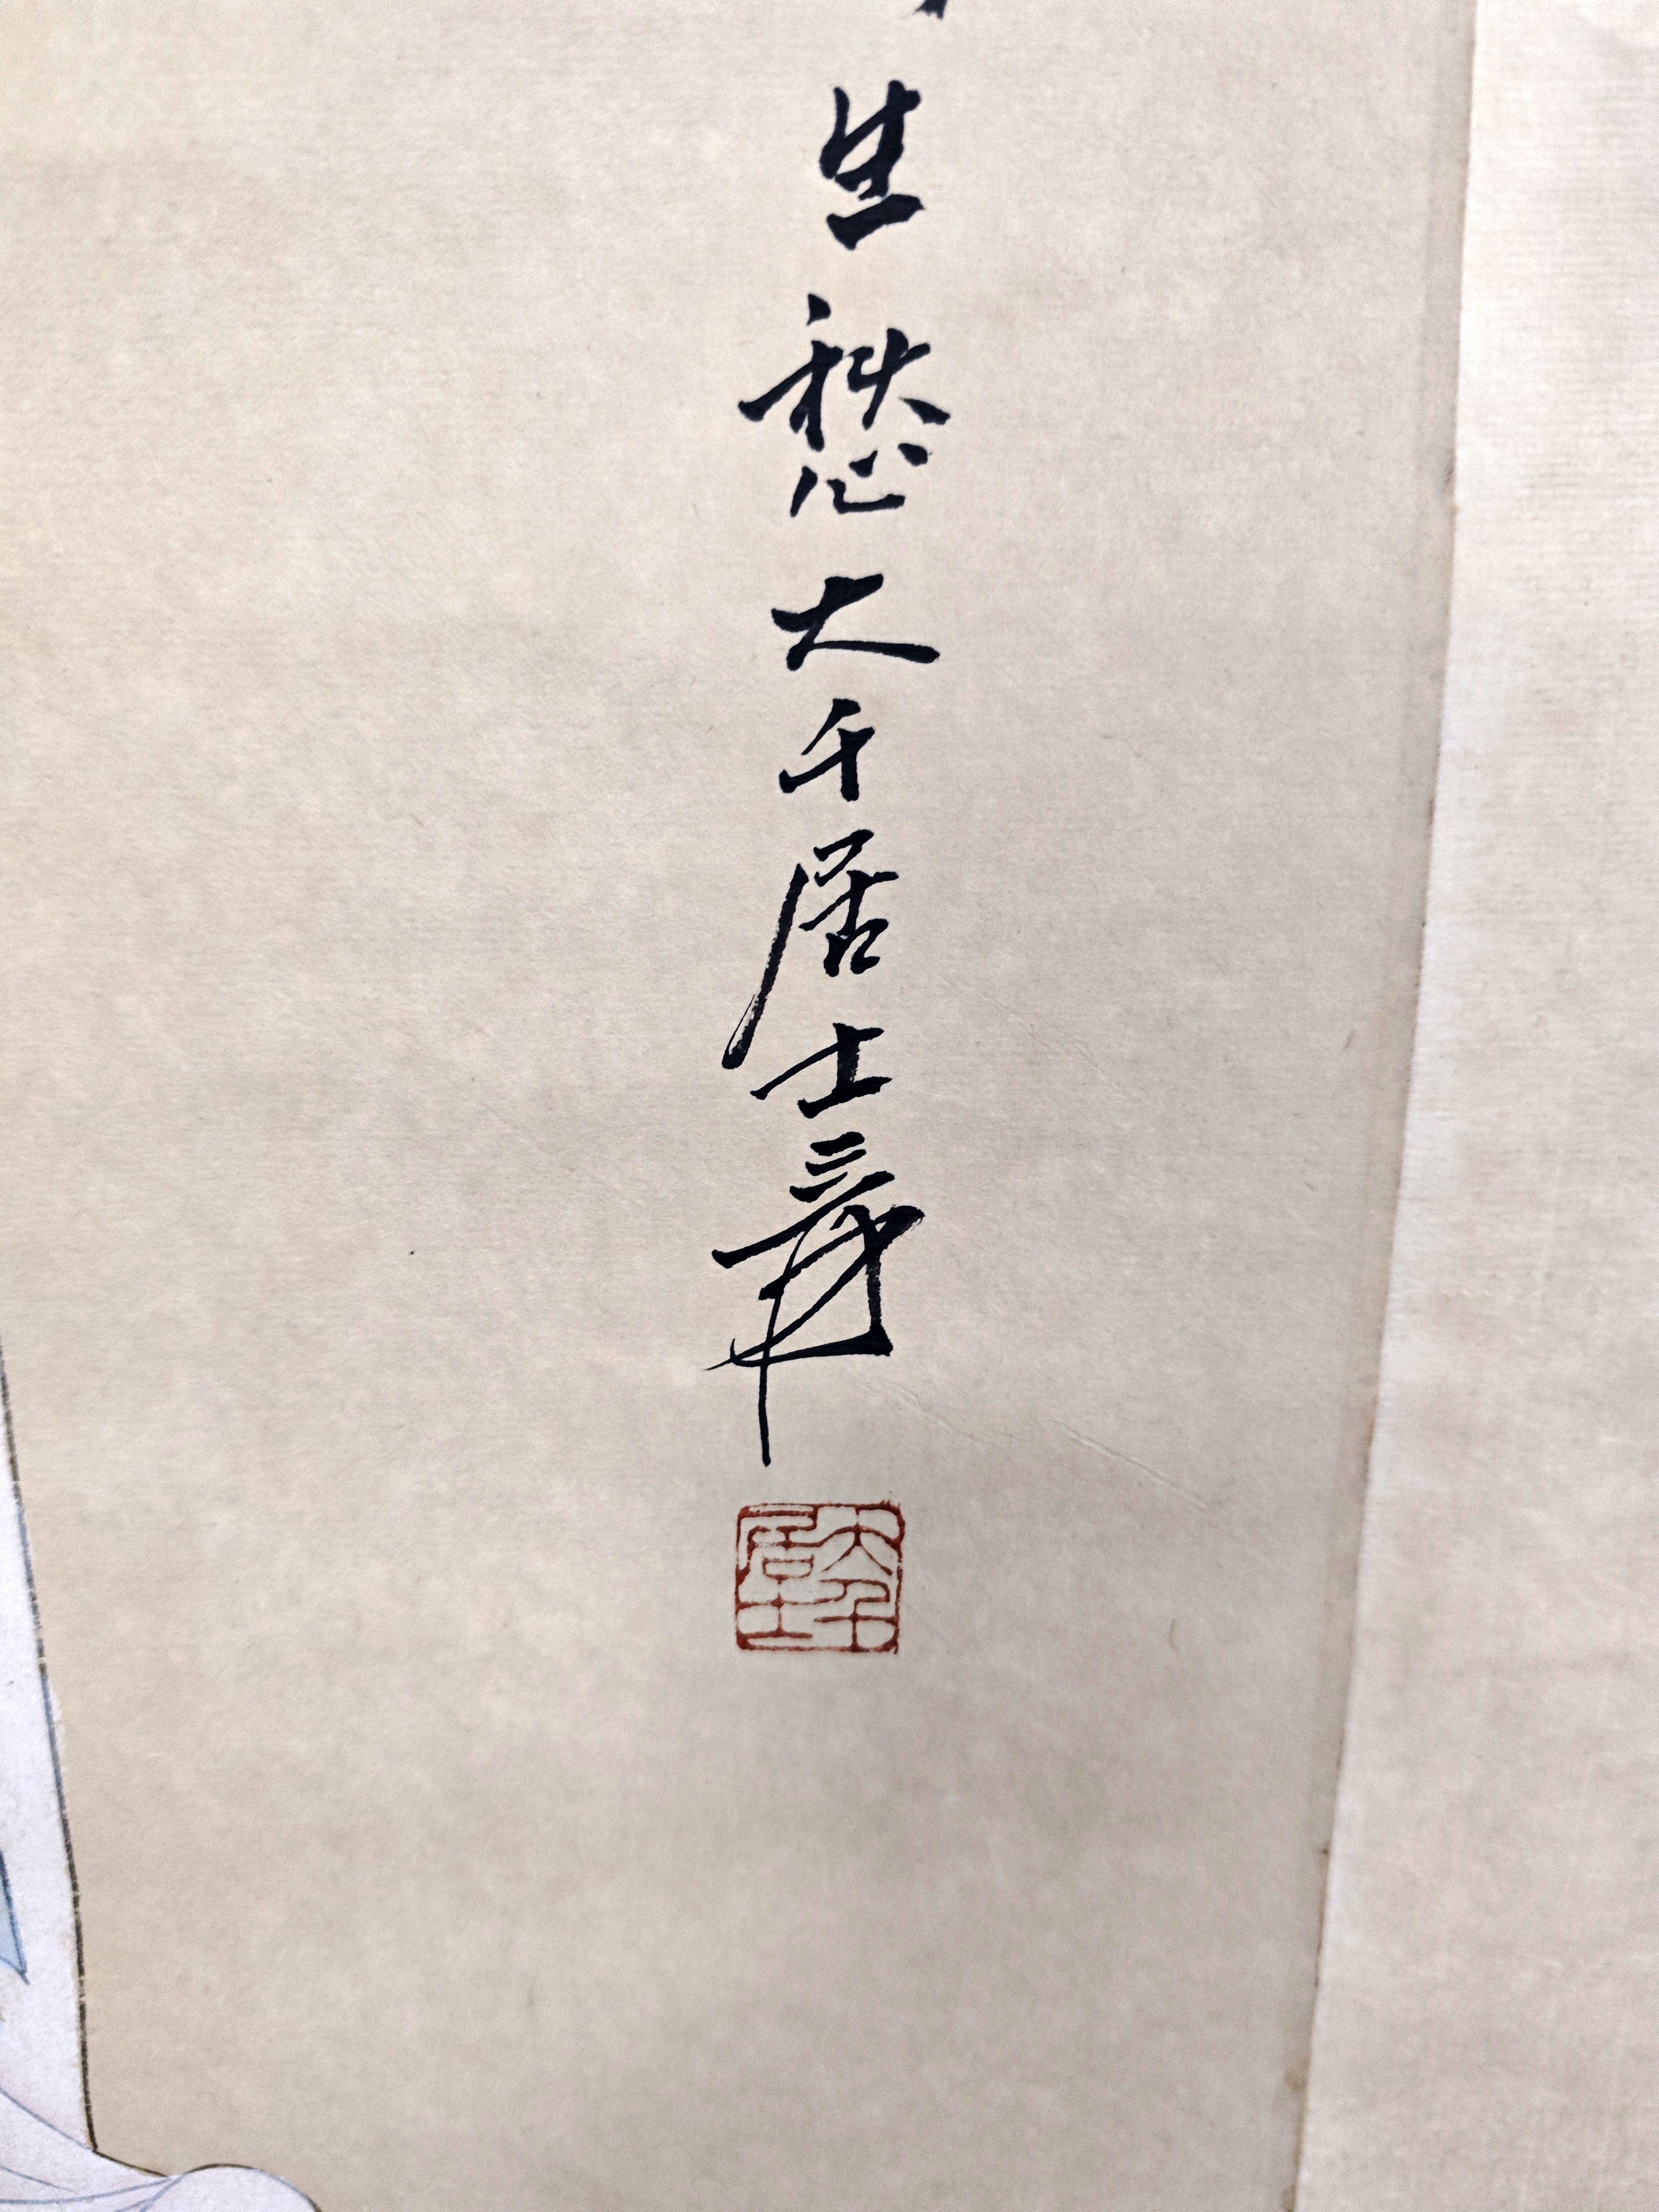 生愁大千居士爰
大千居士